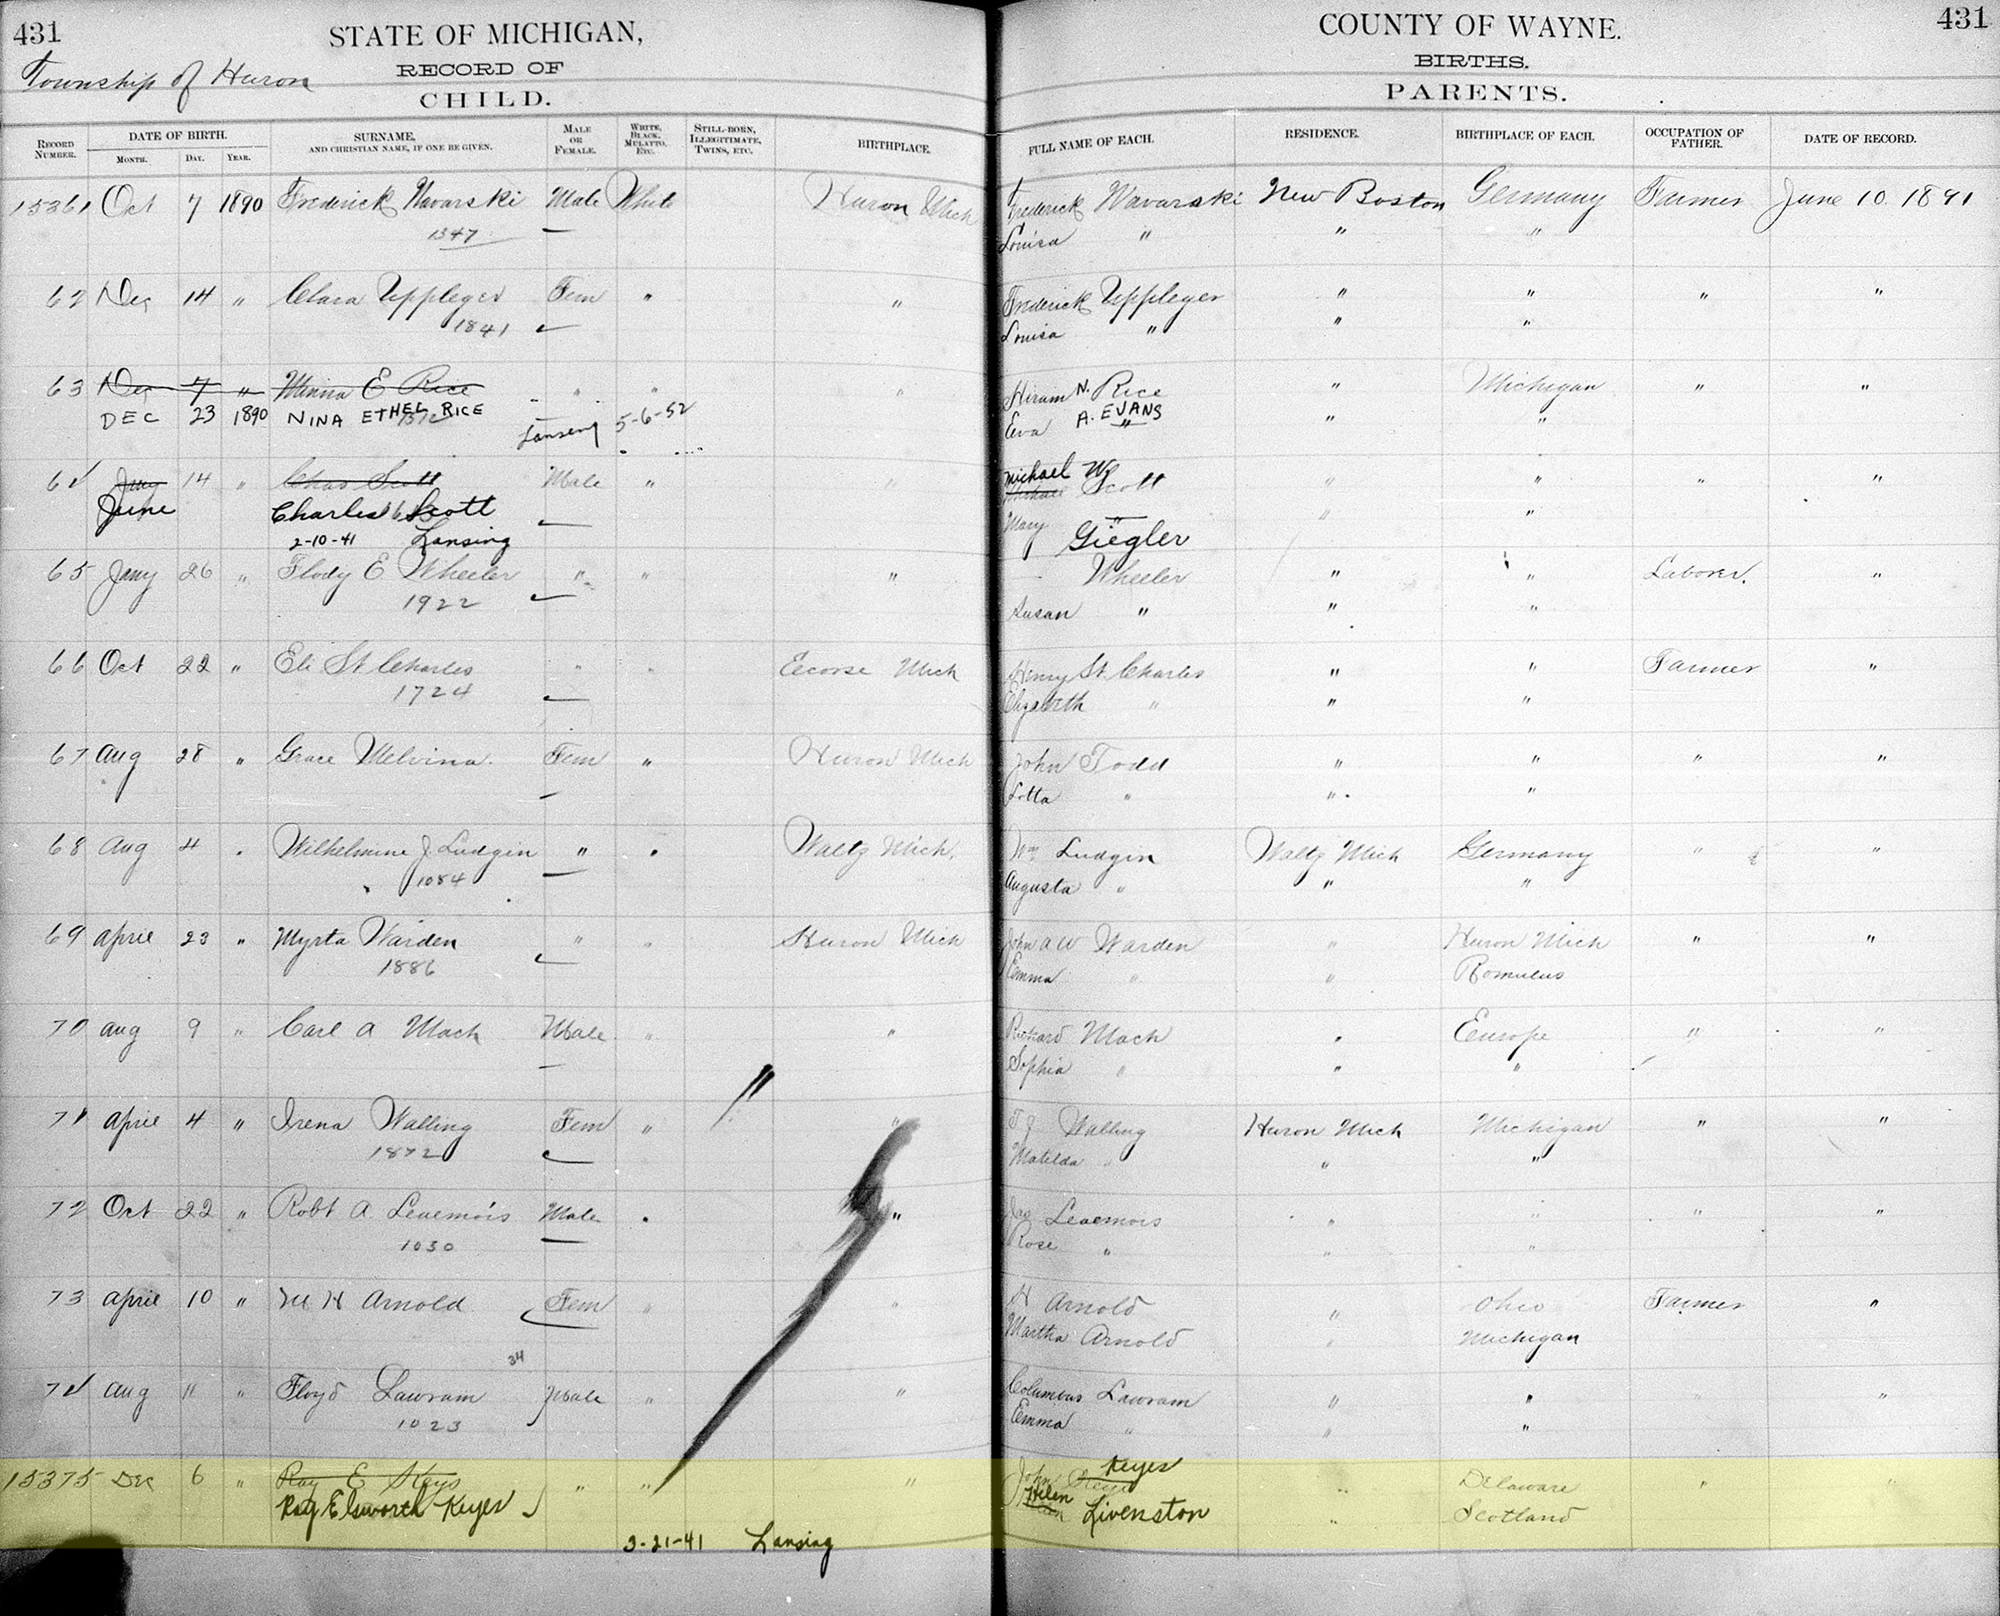 431 STATE OF MICHIGAN, COUNTY OF WAYNE. 431
Township of Huron RECORD OF BIRTHS.
CHILD. PARENTS.
RECORD NUMBER. DATE OF BIRTH. MONTH. DAY. YEAR. SURNAME, AND CHRISTIAN NAME, IF ONE BE GIVEN. MALE OR FEMALE. WHITE, BLACK, MULATTO, ETC. STILL-BORN, ILLEGITIMATE, TWINS, ETC. BIRTHPLACE. FULL NAME OF EACH. RESIDENCE. BIRTHPLACE OF EACH. OCCUPATION OF FATHER. DATE OF RECORD.
15361 Oct 7 1890 Frederick Wavarski Male White Huron Mich Frederick Wavarski New Boston Germany Farmer June 10 1891
1347 Louisa " " "
62 Dec 14 " Clara Uppleger Fem " " Frederick Uppleger " " " "
1841 Louisa " " "
63 Dec 7 " E Rice " " " Hiram N. Rice " Michigan " "
DEC 23 1890 NINA ETHEL RICE Lansing 5-6-52 Eva A. EVANS " " "
64 14 " Chas Scott Male " " Michael W. Scott " " " "
June Charles Scott Mary " " "
2-10-41 Lansing Giegler
65 Jany 26 " Flody E Wheeler " " " Wheeler " " Laborer. "
1922 Susan " " "
66 Oct 22 " Eli St Charles " " Ecorse Mich Henry St. Charles " " Farmer "
1724 Elizabeth " " "
67 Aug 28 " Grace Melvina. Fem " Huron Mich John Todd " " " "
Lotta " " "
68 Aug 4 " Wilhelmine J. Ludgin " " Waltz Mich. Wm Ludgin Waltz Mich Germany " "
1084 Augusta " " "
69 April 23 " Myrta Warden " " Huron Mich John A W Warden " Huron Mich " "
1886 Emma " " Romulus
70 Aug 9 " Carl A Mach Male " " Richard Mach " Europe " "
Sophia " " "
71 April 4 " Irena Walling Fem " " " T J Walling Huron Mich Michigan " "
1872 Matilda " " "
72 Oct 22 " Robt A. Levemois Male " " Jas Levemois " " " "
1030 Rose " " "
73 April 10 " M H Arnold Fem " " H Arnold " Ohio Farmer "
Martha Arnold " Michigan
34
74 Aug 11 " Floyd Lawram Male " " Columbus Lawram " " " "
1023 Emma " " "
15375 Dec 6 " Ray E Keys " " " John Keyes " Delaware " "
Ray Elsworth Keyes Helen Livenston " Scotland
3-21-41 Lansing